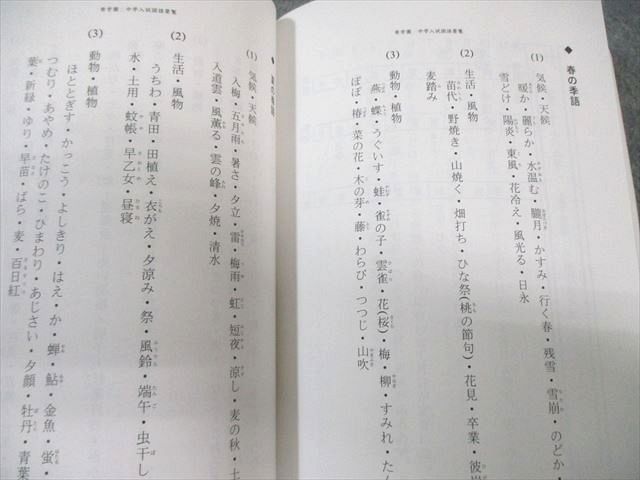 希学園 中学入試国語要覧
◆ 春の季語
(1) 気候・天候
暖か・麗らか・水温む・朧月・かすみ・行く春・残雪・雪崩・のどか・
雪どけ・陽炎・東風・花冷え・風光る・日永
(2) 生活・風物
苗代・野焼き・山焼く・畑打ち・ひな祭(桃の節句)・花見・卒業・彼岸
麦踏み
(3) 動物・植物
燕・蝶・うぐいす・蛙・雀の子・雲雀・花(桜)・梅・柳・すみれ・たん
ぽぽ・椿・菜の花・木の芽・藤・わらび・つつじ・山吹
希学園 中学入試国語要覧
の季語
(1) 気候・天候
入梅・五月雨・暑さ・夕立・雷・梅雨・虹・短夜・涼し・麦の秋・土
入道雲・風薫る・雲の峰・夕焼・清水
(2) 生活・風物
うちわ・青田・田植え・衣がえ・夕涼み・祭・風鈴・端午・虫干し
水・土用・蚊帳・早乙女・昼寝
(3) 動物・植物
ほととぎす・かっこう・よしきり・はえ・か・蝉・鮎・金魚・蛍・
つむり・あやめ・たけのこ・ひまわり・あじさい・夕顔・牡丹・青葉
葉・新緑・ゆり・早苗・ばら・麦・百日紅